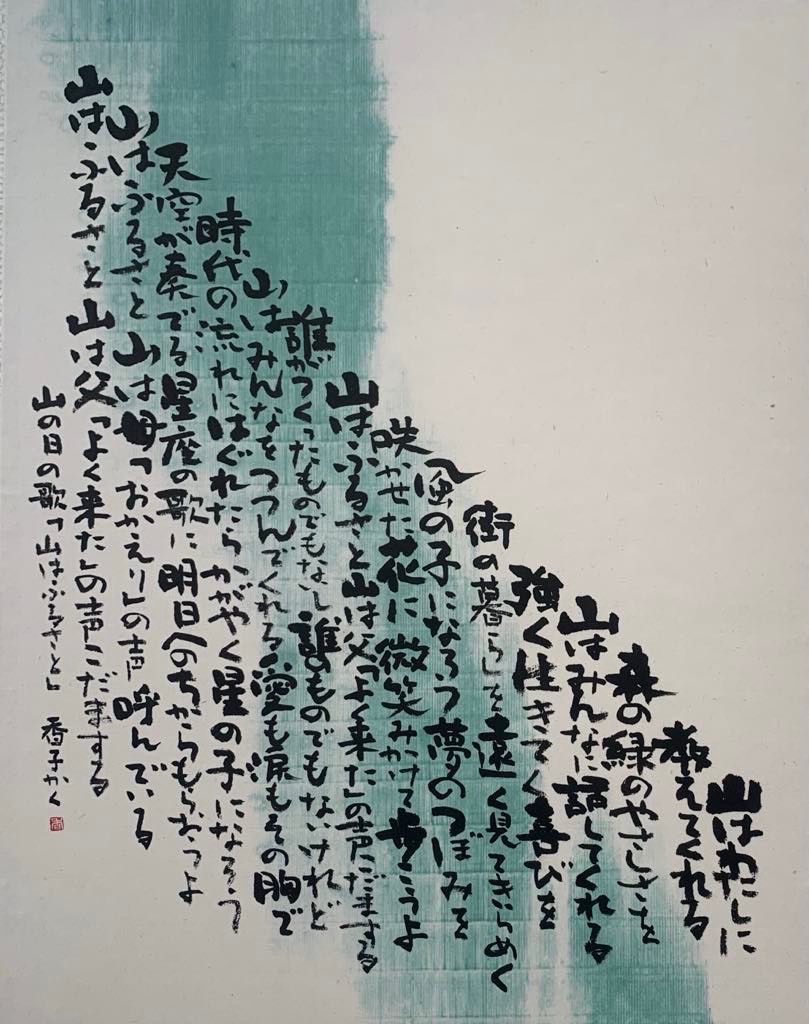 山はわたしに
教えてくれる
森の緑のやさしさを
山はみんなに話してくれる
強く生きてく喜びを
街の暮らしを遠く見てきらめく
風の子になろう夢のつぼみを
咲かせた花に微笑みかけて歩こうよ
山はふるさと山は父「よく来た」の声こだまする
誰がつくったものでもない誰のものでもないけれど
山はみんなをつつんでくれる愛も涙もその胸で
時代の流れにはぐれたらかがやく星の子になろう
天空が奏でる星座の歌に明日へのちからもらおうよ
山はふるさと山は母「おかえり」の声呼んでいる
山はふるさと山は父「よく来た」の声こだまする
山の日の歌「山はふるさと」 香子かく